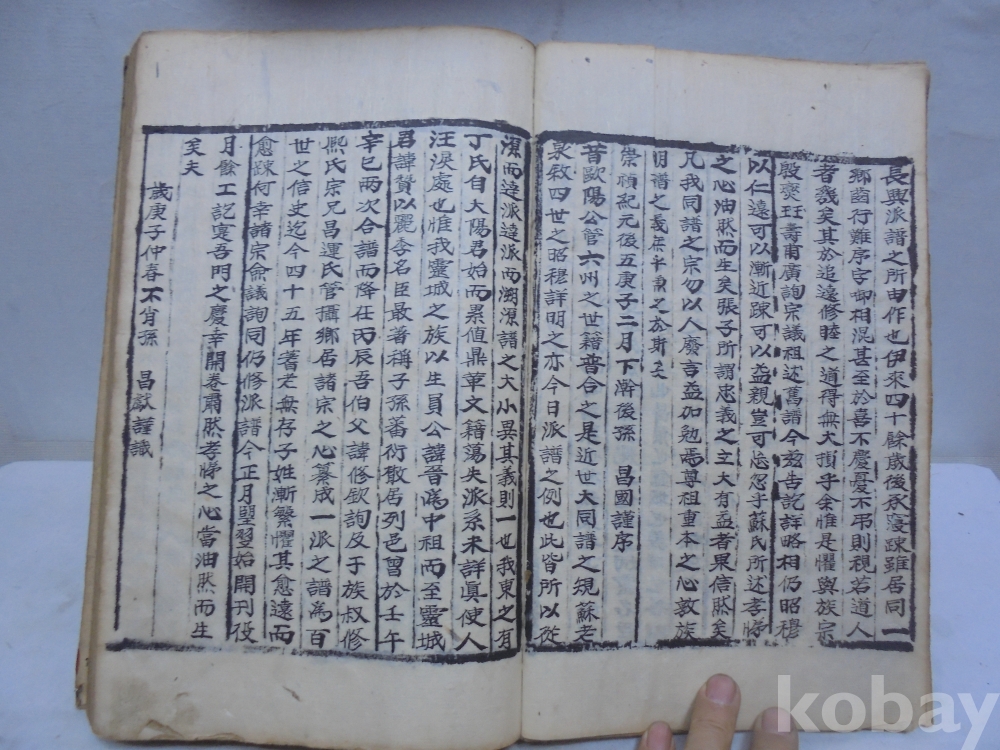 長興派譜之所由作也伊來四十餘歲後承寢踈雖居同一
鄕齒行難序字啣相混甚至於喜不慶憂不弔則視若道人
者幾矣其於追遠修睦之道得無大損乎余惟是懼與族宗
殷燮珏壽甫廣詢宗議祖述舊譜今玆告訖詳略相仍昭穆
以仁遠可以漸近踈可以益親豈可忘忽乎蘇氏所述孝悌
之心油然而生矣張子所謂忠義之立大有益者果信然矣
凡我同譜之宗勿以人廢言益加勉焉尊祖重本之心敎族
明譜之義庶乎兼之於斯矣
崇禎紀元後五庚子二月下澣後孫 昌國謹序
昔歐陽公管六州之世籍普合之是近世大同譜之規蘇老
泉敘四世之昭穆詳明之亦今日派譜之例也此皆所以從
源而達派達派而溯源譜之大小異其義則一也我東之有
丁氏自大陽君始而累値鼎革文籍蕩失派系未詳眞使人
汪淚處也惟我靈城之族以生員公諱晉爲中祖而至靈城
君諱贊以麗季名臣最著稱子孫蕃衍散居列邑曾於壬午
辛巳兩次合譜而降在丙辰吾伯父諱修欽詢及子族叔修
熙氏宗兄昌運氏管攝鄕居諸宗之心纂成一派之譜爲百
世之信史迄今四十五年耆老無存子姓漸繁懼其愈遠而
愈踈何幸諸宗僉議詢同仍修派譜今正月朢翌始開刊役
月餘工訖寔吾門之慶幸開卷肅然孝悌之心當油然而生
矣夫
歲庚子仲春不肖孫 昌獻謹識
kobay